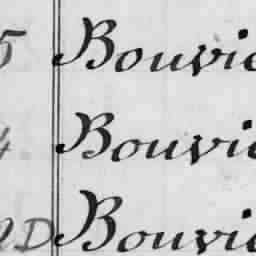 5 Bouvie
4 Bouvie
D Bouvie